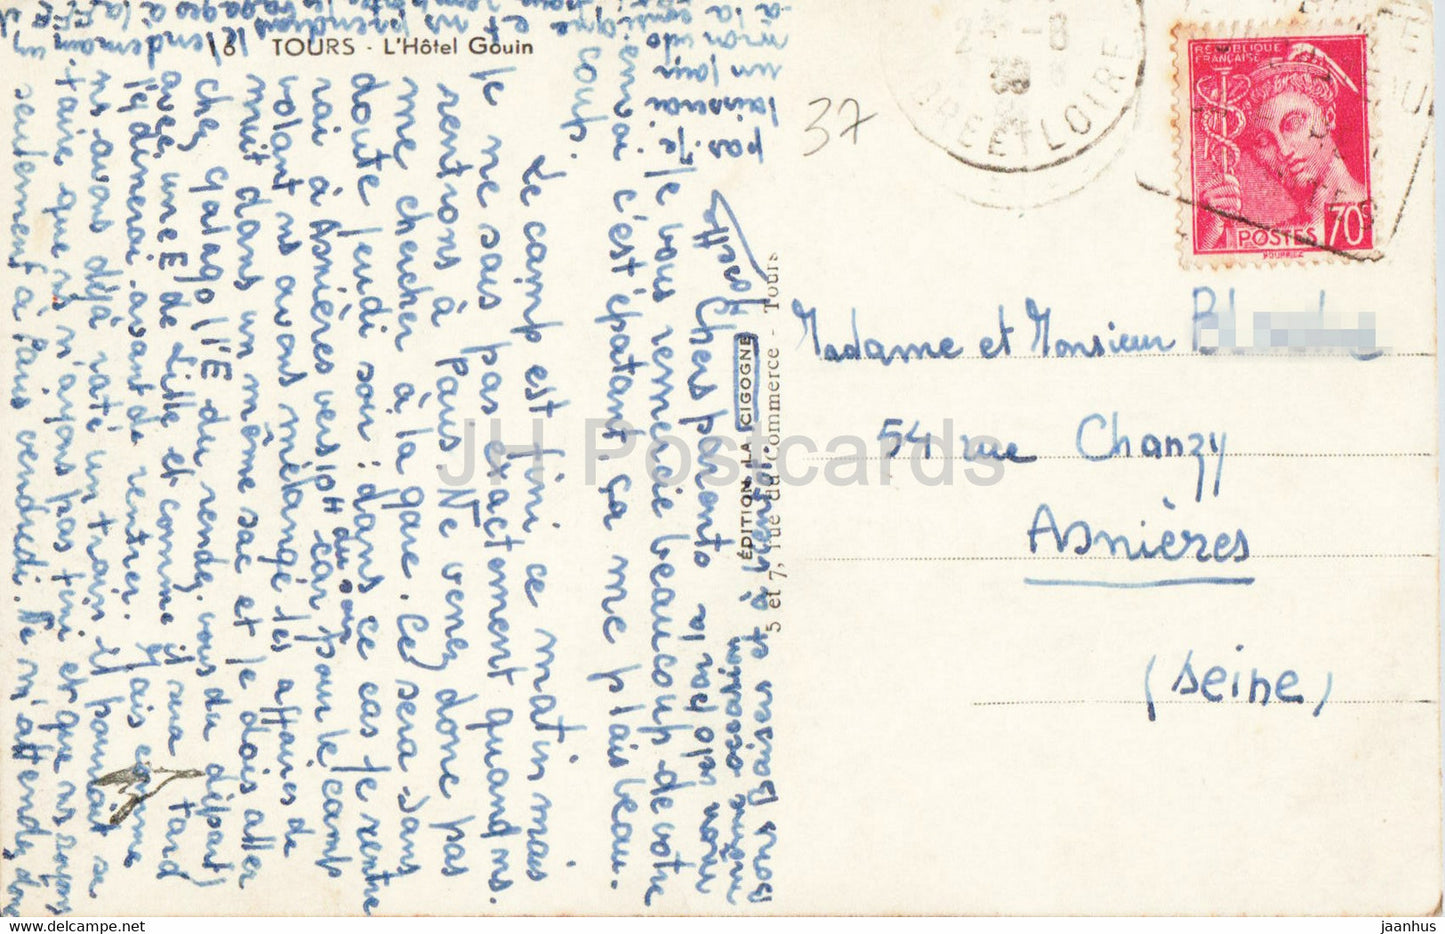 6 TOURS - L'Hôtel Gouin
37
REPUBLIQUE
FRANÇAISE
70c
POSTES
LOIRE
Madame et Monsieur
54 rue Chanzy
Asnières
(Seine)
ÉDITION LA CIGOGNE
5 et 7, rue du Commerce - Tours
Chers parents
Je vous remercie beaucoup de votre
c'est épatant, ça me plais beau
coup.
Le camp est fini ce matin mais
je ne sais pas exactement quand ns
rentrons à Paris. Ne venez donc pas
me chercher à la gare. Ce sera sans
doute jeudi soir : dans ce cas je rentre
rai à Asnières vers 10H car pour le camp
volant ns avons mélangé les affaires de
nuit dans un même sac et je dois aller
chez Galago (l'E du rendez vous du départ)
avec une E de Lille et comme il sera tard
j'y dinerai avant de rentrer. Mais comme
ns avons déjà raté un train il pourrait se
faire que ns n'ayons pas fini et que ns soyons
seulement à Paris vendredi. Ne m'attendez donc
pas. Je
laisserai
un jour
mon vélo
à la consigne
et ns prendrions
le lendemain
JH Postcards
jaanhus